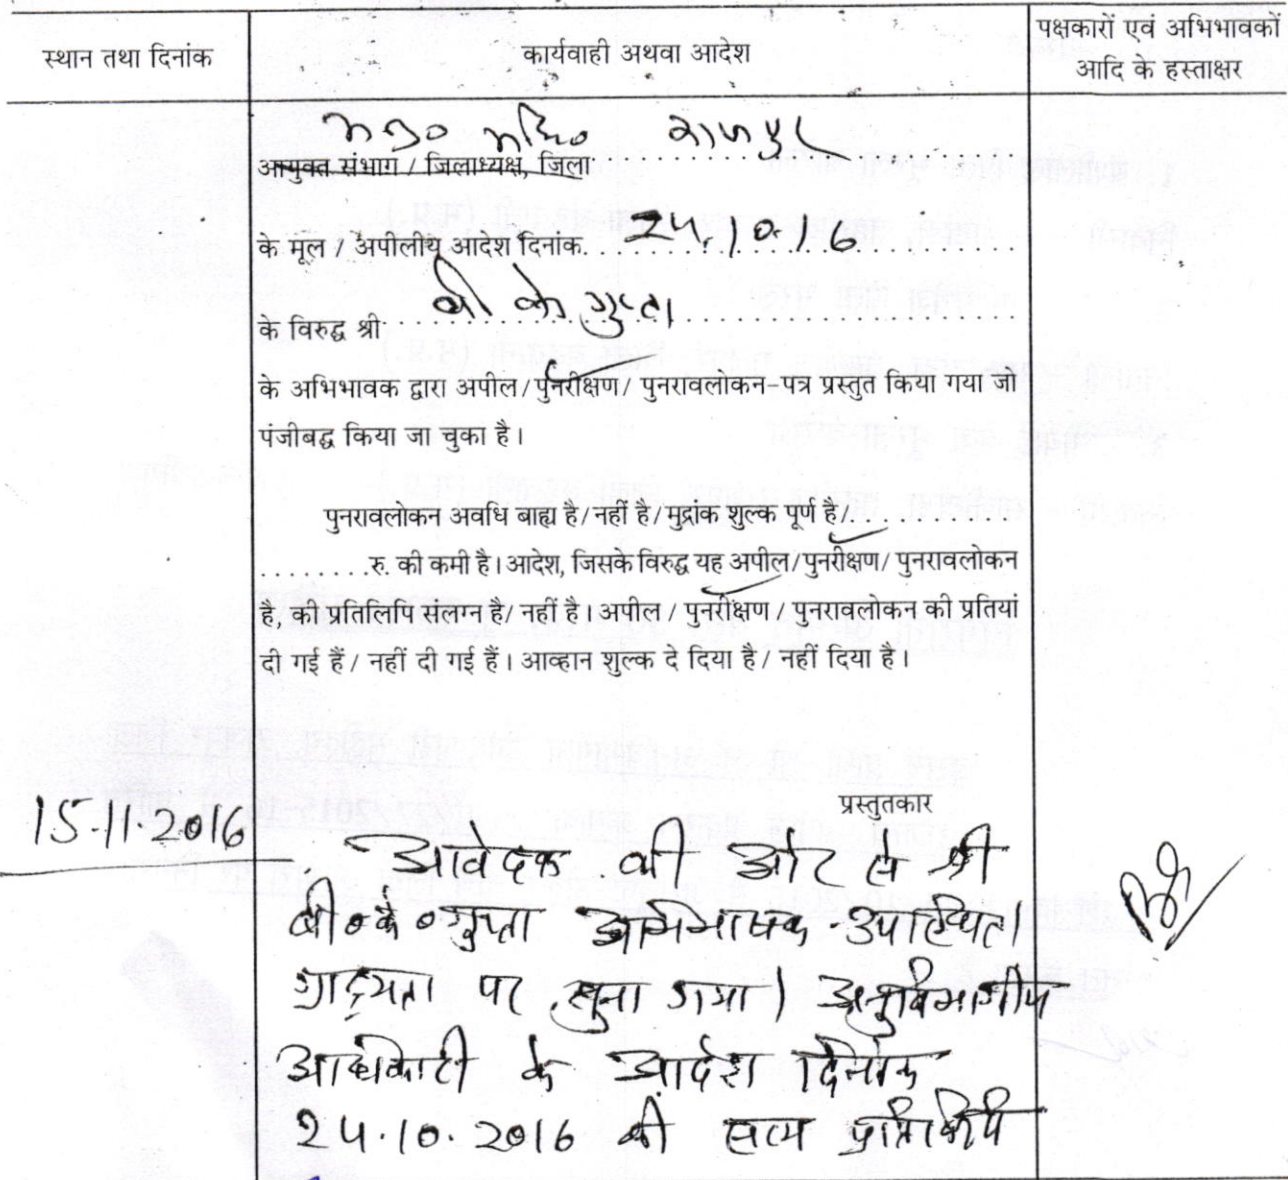 स्थान तथा दिनांक
कार्यवाही अथवा आदेश
पक्षकारों एवं अभिभावकों
आदि के हस्ताक्षर
आयुक्त संभाग / जिलाध्यक्ष, जिला
के मूल / अपीलीय आदेश दिनांक 24.10.16
के विरुद्ध श्री बी के गुप्ता
के अभिभावक द्वारा अपील/पुनरीक्षण/ पुनरावलोकन-पत्र प्रस्तुत किया गया जो
पंजीबद्ध किया जा चुका है।
पुनरावलोकन अवधि बाह्य है/ नहीं है/ मुद्रांक शुल्क पूर्ण है/..........
........रु. की कमी है। आदेश, जिसके विरुद्ध यह अपील/पुनरीक्षण/ पुनरावलोकन
है, की प्रतिलिपि संलग्न है/ नहीं है। अपील / पुनरीक्षण / पुनरावलोकन की प्रतियां
दी गई हैं / नहीं दी गई हैं। आव्हान शुल्क दे दिया है / नहीं दिया है।
प्रस्तुतकार
15.11.2016
आवेदक की ओर से श्री
बी०के०गुप्ता अभिभाषक उपस्थित।
ग्राह्यता पर सुना गया। अनुविभागीय
अधिकारी के आदेश दिनांक
24.10.2016 की सत्य प्रतिलिपि